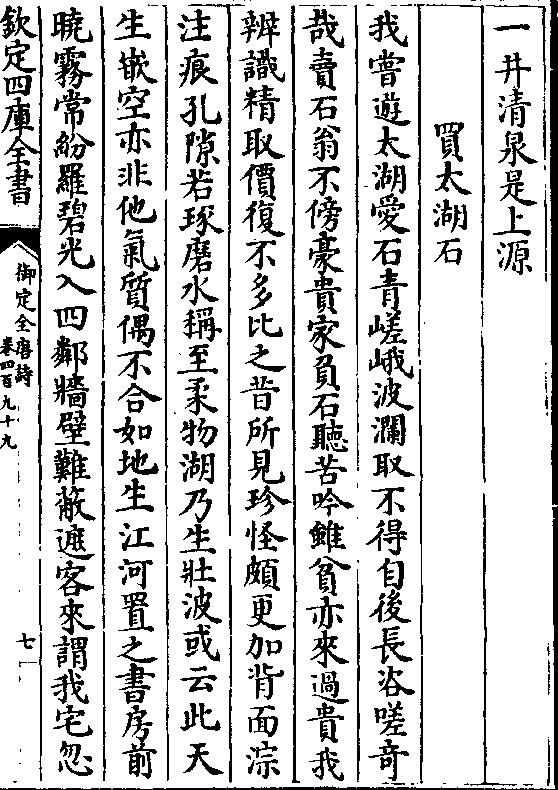 一井清泉是上源
買太湖石
我嘗遊太湖愛石青嵯峨波瀾取不得自後長咨嗟奇
哉賣石翁不傍豪貴家負石聽苦吟雖貧亦來過貴我
辨識精取價復不多比之昔所見珍怪頗更加背面淙
注痕孔隙若琢磨水稱至柔物湖乃生壯波或云此天
生嵌空亦非他氣質偶不合如地生江河置之書房前
曉霧常紛羅碧光入四鄰牆壁難蔽遮客來謂我宅忽
欽定四庫全書
御定全唐詩
卷四百九十九
七